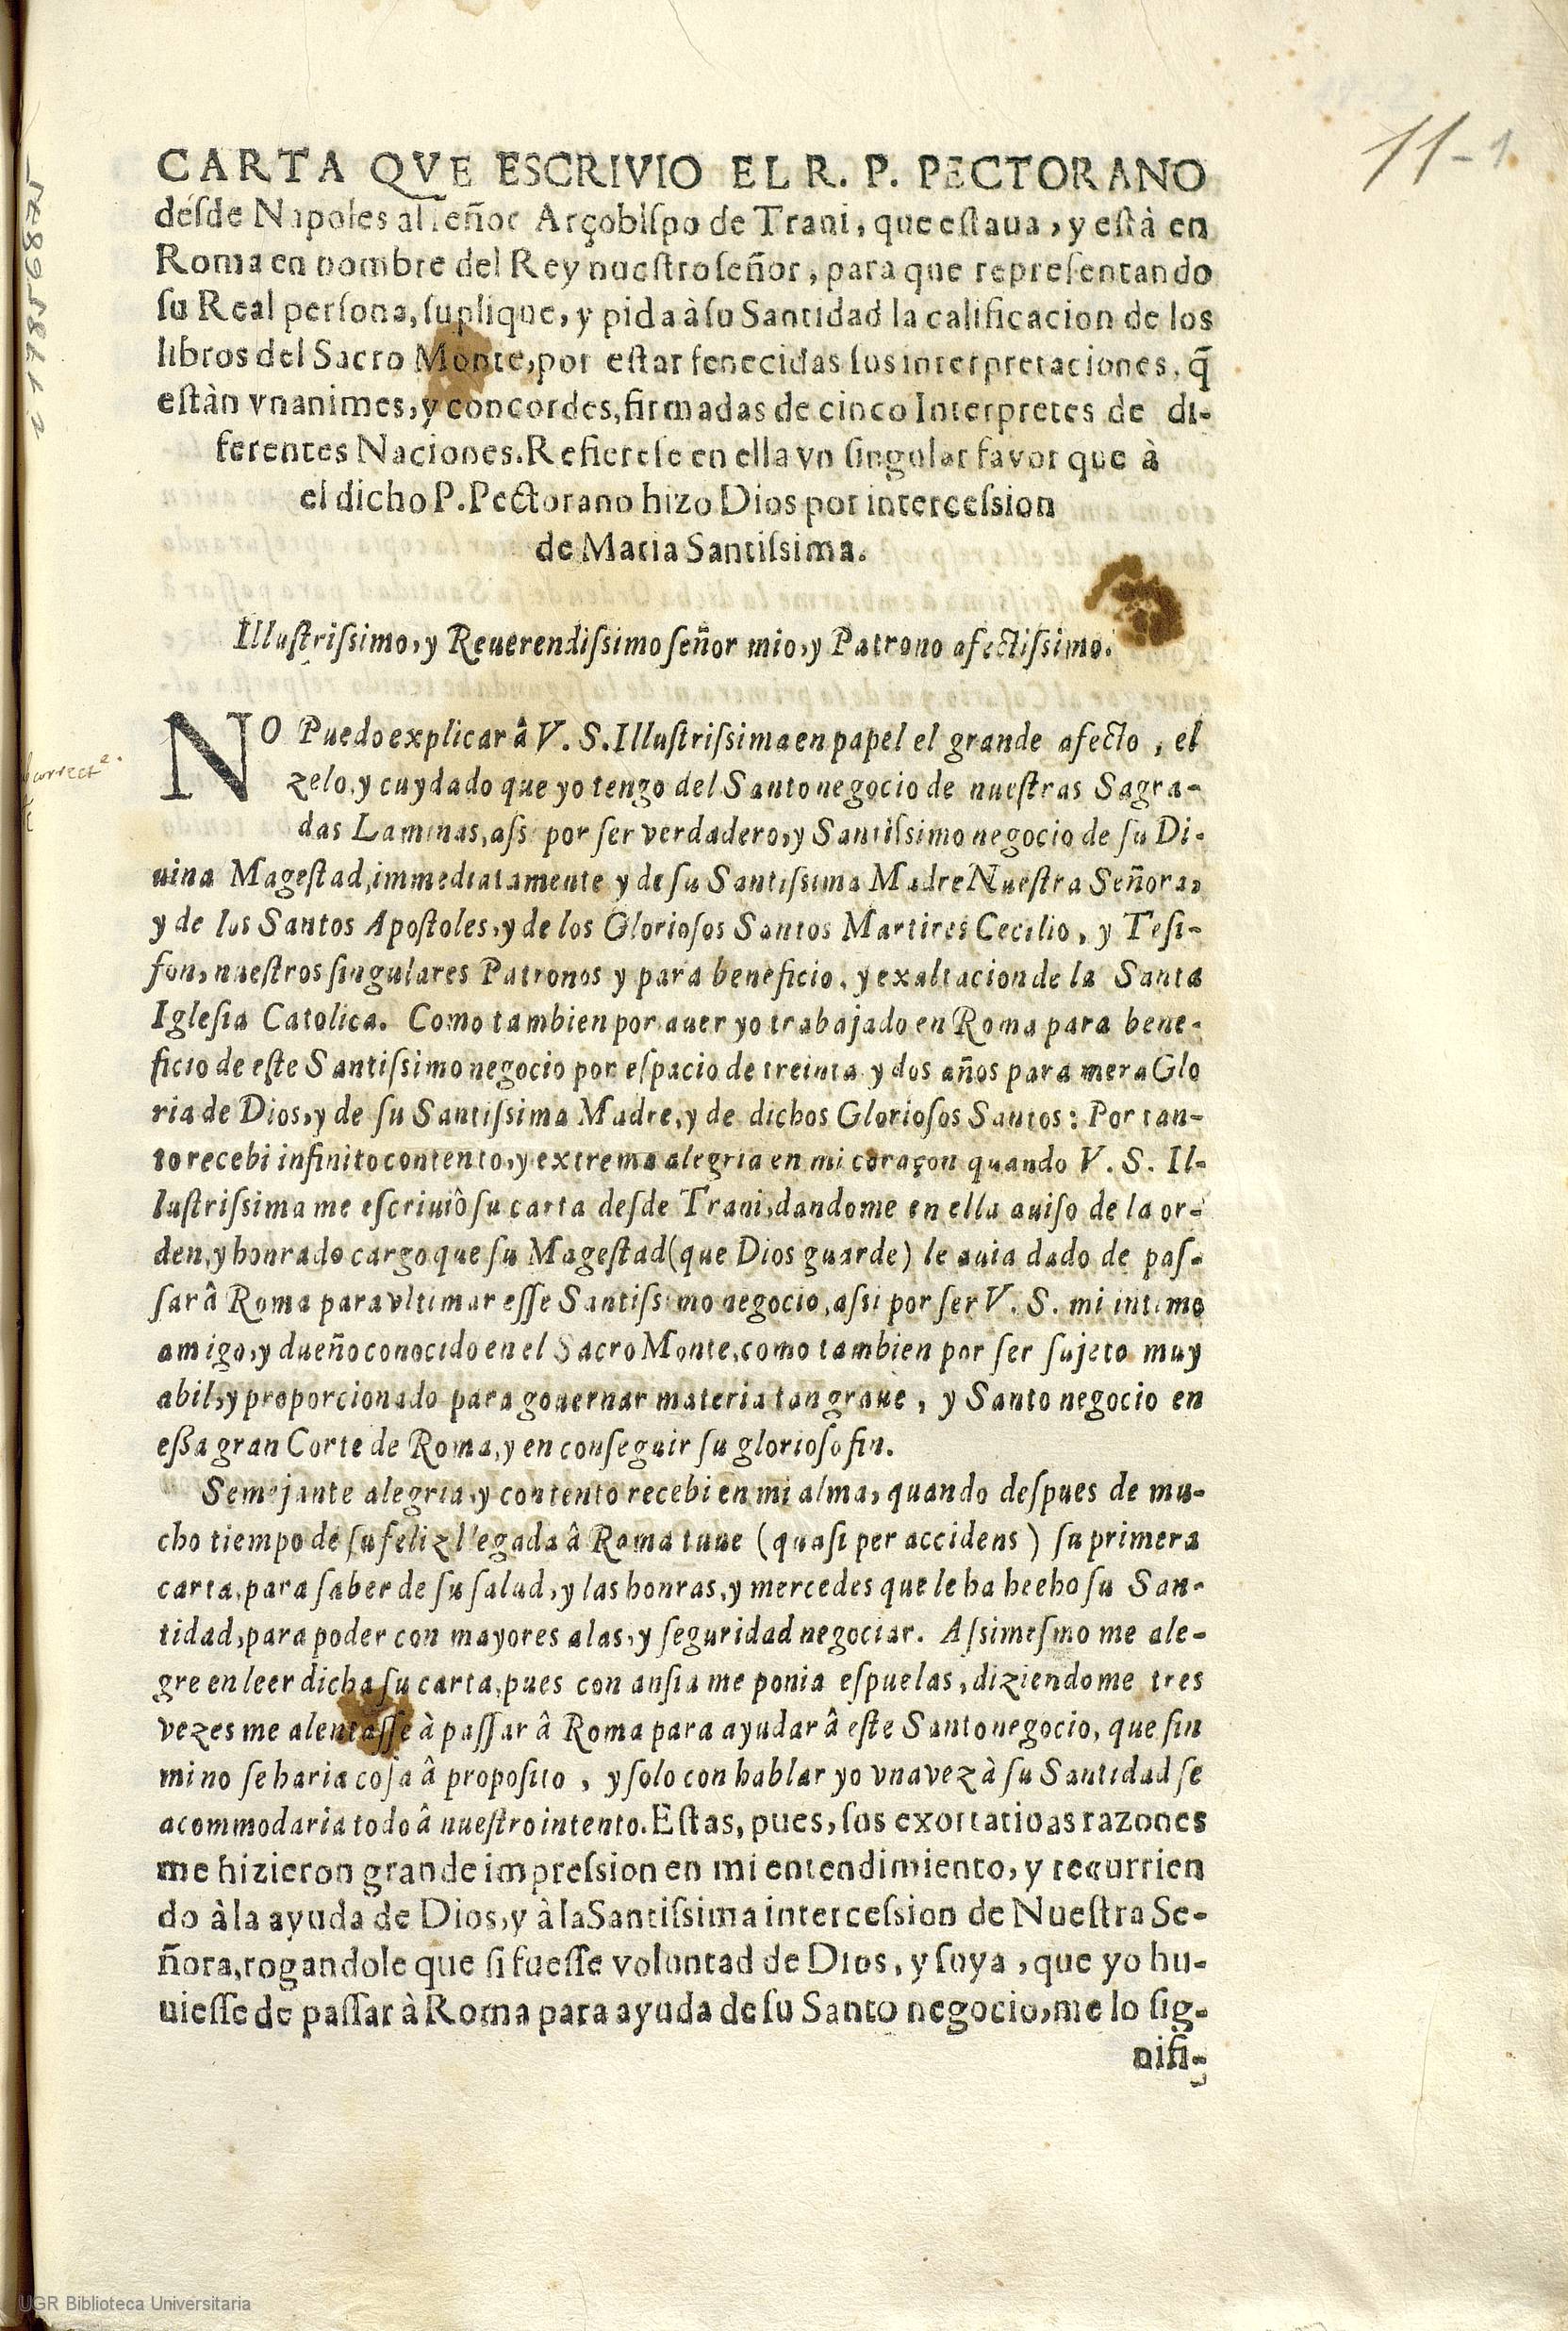 11-1
CARTA QVE ESCRIVIO EL R. P. PECTORANO
désde Napoles al señor Arçobiſpo de Trani, que eſtaua, y eſtà en
Roma en nombre del Rey nueſtro ſeñor, para que repreſentando
ſu Real perſona, ſuplique, y pida à ſu Santidad la calificacion de los
libros del Sacro Monte, por eſtar fenecidas ſus interpretaciones, q̃
eſtàn vnanimes, y concordes, firmadas de cinco Interpretes de di-
ferentes Naciones. Refiereſe en ella vn ſingular favor que à
el dicho P. Pectorano hizo Dios por interceſsion
de Maria Santiſsima.
Illuſtriſsimo, y Reuerendiſsimo ſeñor mio, y Patrono afectiſsimo.
NO Puedo explicar â V. S. Illuſtriſsima en papel el grande afecto, el
zelo, y cuydado que yo tengo del Santo negocio de nueſtras Sagra-
das Laminas, aſsi por ſer verdadero, y Santiſsimo negocio de ſu Di-
uina Mageſtad, immediatamente y de ſu Santiſsima Madre Nueſtra Señora,
y de los Santos Apoſtoles, y de los Glorioſos Santos Martires Cecilio, y Teſi-
fon, nueſtros ſingulares Patronos y para beneficio, y exaltacion de la Santa
Igleſia Catolica. Como tambien por auer yo trabajado en Roma para bene-
ficio de eſte Santiſsimo negocio por eſpacio de treinta y dos años para mera Glo
ria de Dios, y de ſu Santiſsima Madre, y de dichos Glorioſos Santos: Por tan-
to recebi infinito contento, y extrema alegria en mi coraçon quando V. S. Il-
luſtriſsima me eſcriuiô ſu carta deſde Trani, dandome en ella auiſo de la or-
den, y honrado cargo que ſu Mageſtad (que Dios guarde) le auia dado de paſ-
ſar â Roma para vltimar eſſe Santiſsimo negocio, aſsi por ſer V. S. mi intimo
amigo, y dueño conocido en el Sacro Monte, como tambien por ſer ſujeto muy
abil, y proporcionado para gouernar materia tan graue, y Santo negocio en
eſſa gran Corte de Roma, y en conſeguir ſu glorioſo fin.
Semejante alegria, y contento recebi en mi alma, quando deſpues de mu-
cho tiempo de ſu feliz llegada â Roma tuue (quaſi per accidens) ſu primera
carta, para ſaber de ſu ſalud, y las honras, y mercedes que le ha heeho ſu San-
tidad, para poder con mayores alas, y ſeguridad negociar. Aſsimeſmo me ale-
gre en leer dicha ſu carta, pues con anſia me ponia eſpuelas, diziendome tres
vezes me alentaſſe à paſſar â Roma para ayudar â eſte Santo negocio, que ſin
mi no ſe haria coſa â propoſito, y ſolo con hablar yo vna vez à ſu Santidad ſe
acommodaria todo â nueſtro intento. Eſtas, pues, ſus exortatioas razones
me hizieron grande impreſsion en mi entendimiento, y recurrien
do à la ayuda de Dios, y à la Santiſsima interceſsion de Nueſtra Se-
ñora, rogandole que ſi fueſſe voluntad de Dios, y ſuya, que yo hu-
uieſſe de paſſar à Roma para ayuda de ſu Santo negocio, me lo ſig-
nifi-
UGR Biblioteca Universitaria